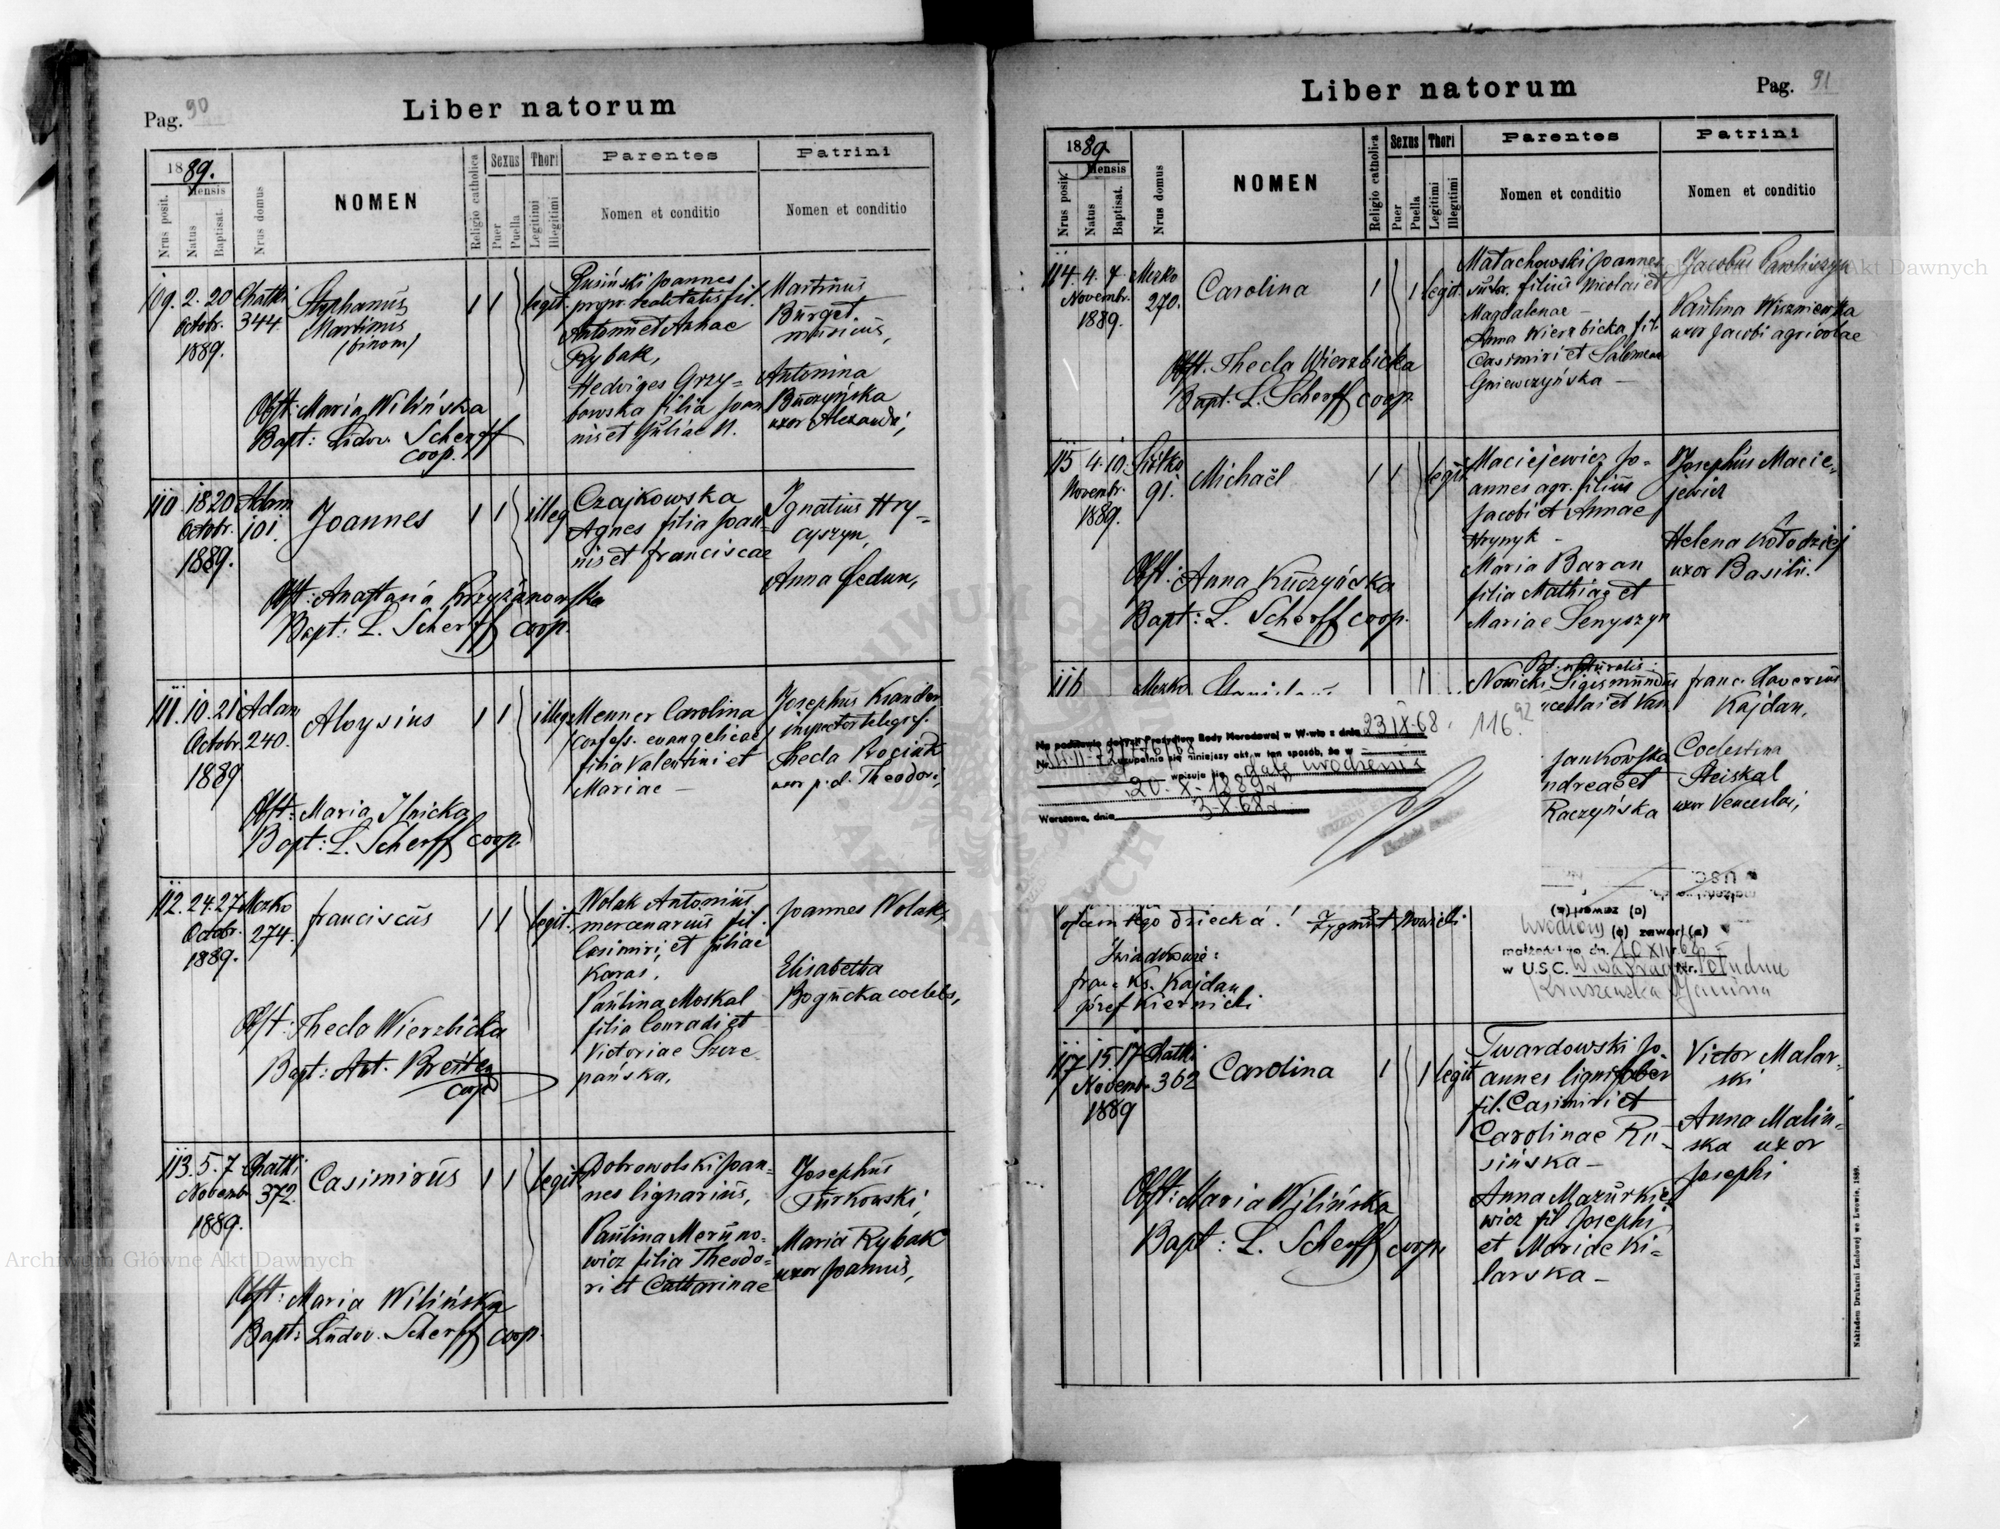 Pag. 90
Liber natorum
1889.
Mensis
Nrus posit.
Natus
Baptisat.
Nrus domus
NOMEN
Religio catholica
Sexus
Puer
Puella
Thori
Legitimi
Illegitimi
Parentes
Nomen et conditio
Patrini
Nomen et conditio
109. 2. 20
Octobr.
1889.
Chatki
344.
Stephanus
Martinus
(binom)
1 1 legit.
Rusiński Joannes
propr. realitatis fil.
Antonii et Annae
Rybak,
Hedviges Grzy=
bowska filia Joan
nis et Juliae N.
Martinus
Burget
musicus,
Antonina
Buczyńska
uxor Alexandri,
Obst: Maria Wilińska
Bapt: Ludov. Scherff
coop.
110 18 20
Octobr.
1889.
Adam
101.
Joannes
1 1 illeg.
Czajkowska
Agnes filia Joan=
nis et Franciscae
Ignatius Hry=
cyszyn,
Anna Fedun,
Obst: Anastasia Krzyżanowska
Bapt: L. Scherff coop.
111. 10. 21
Octobr.
1889
Adam
240.
Aloysius
1 1 illeg.
Menner Carolina
(confess. evangelicae)
filia Valentini et
Mariae —
Josephus Krander
inspector telegraf.
Thecla Rogiuk
uxor p.d. Theodori,
Obst: Maria Ilnicka
Bapt: L. Scherff coop.
112. 24. 27
Octobr.
1889.
Mezko
274.
Franciscus
1 1 legit.
Wolak Antonius
mercenarius fil.
Casimiri, et Juliae
Karas.
Paulina Moskal
filia Conradi et
Victoriae Szcze
pańska.
Joannes Wolak,
Elisabetha
Bogucka coelebs,
Obst: Thecla Wierzbicka
Bapt: Ant. Breiter
coop
113. 5. 7
Novembr.
1889.
Chatki
372.
Casimirus
1 1 legit.
Dobrowolski Joan=
nes lignarius,
Paulina Meruno=
wicz filia Theodo=
ri et Catharinae
Josephus
Turkowski,
Maria Rybak
uxor Joannis,
Obst: Maria Wilińska
Bapt: Ludov. Scherff coop.
Archiwum Główne Akt Dawnych
Liber natorum
Pag. 91
1889
Mensis
Nrus posit.
Natus
Baptisat.
Nrus domus
NOMEN
Religio catholica
Sexus
Puer
Puella
Thori
Legitimi
Illegitimi
Parentes
Nomen et conditio
Patrini
Nomen et conditio
114. 4. 7.
Novembr.
1889.
Mezko
270.
Carolina
1 1 legit.
Małachowski Joannes
sutor. filius Nicolai et
Magdalenae —
Anna Wierzbicka fil.
Casimiri et Salomeae
Gniewczyńska —
Jacobus Pawliszyn
Paulina Wiszniewska
uxor Jacobi agricolae
Akt Dawnych
Obst. Thecla Wierzbicka
Bapt. L. Scherff coop.
115 4. 10.
Novembr.
1889.
91.
Michaël
1 1 legit.
Maciejewicz Jo-
annes agr. filius
Jacobi et Annae
Hrynyk —
Maria Baran
filia Mathiae et
Mariae Senyszyn
Josephus Macie=
jewicz
Helena Kołodziej
uxor Basilii.
Obst: Anna Kuczyńska
Bapt: L. Scherff coop.
116
Mezko
Nowicki Sigismundus
Franc. Xaverius
Kajdan,
Jankowska
Andreae et
Raczyńska
Coelestina
Steiskal
uxor Venceslai,
116
Na podstawie decyzji Prezydium Rady Narodowej w W-wie z dnia 23 IX-68.
uzupełnia się niniejszy akt w ten sposób, że w
wpisuje się datę urodzenia
20-X-1889r
Warszawa, dnia 3-X-68r
ojcem tego dziecka! Zygmunt Nowicki
Świadkowie:
Franc. Ks. Kajdan
Józef Kiernicki
(o) zawarł (a)
małżeństwo dn. 10 XII 68
w U.S.C. Warszawa
Kruszewska Janina
117 15. 17
Novembr.
1889
Chatki
362
Carolina
1 1 legit
Twardowski Jo
annes lignifaber
fil. Casimiri et
Carolinae Ru=
sińska —
Anna Mazurkie
wicz fil Josephi
et Mariae Ki=
larska —
Victor Malar=
ski
Anna Malin=
ska uxor
Josephi
Obst: Maria Wilińska
Bapt: L. Scherff coop.
Nakładem Drukarni Ludowej we Lwowie. 1889.